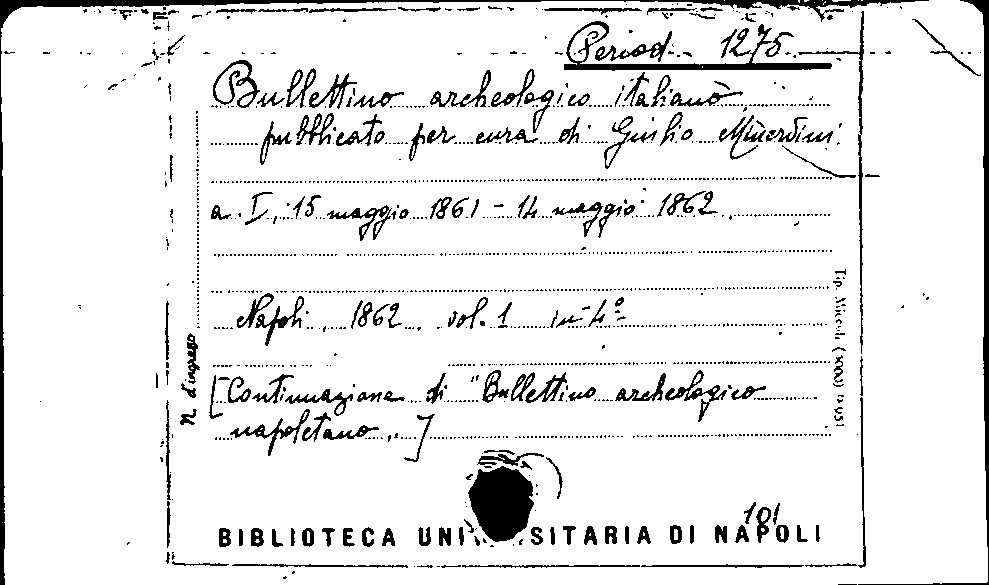 Period. 1275
Bullettino archeologico italiano
pubblicato per cura di Giulio Minervini.
a. I, 15 maggio 1861 - 14 maggio 1862.
Napoli, 1862. vol. 1 in-4º
[Continuazione di "Bullettino archeologico
napoletano„]
N. d'ingresso
101
BIBLIOTECA UNI SITARIA DI NAPOLI